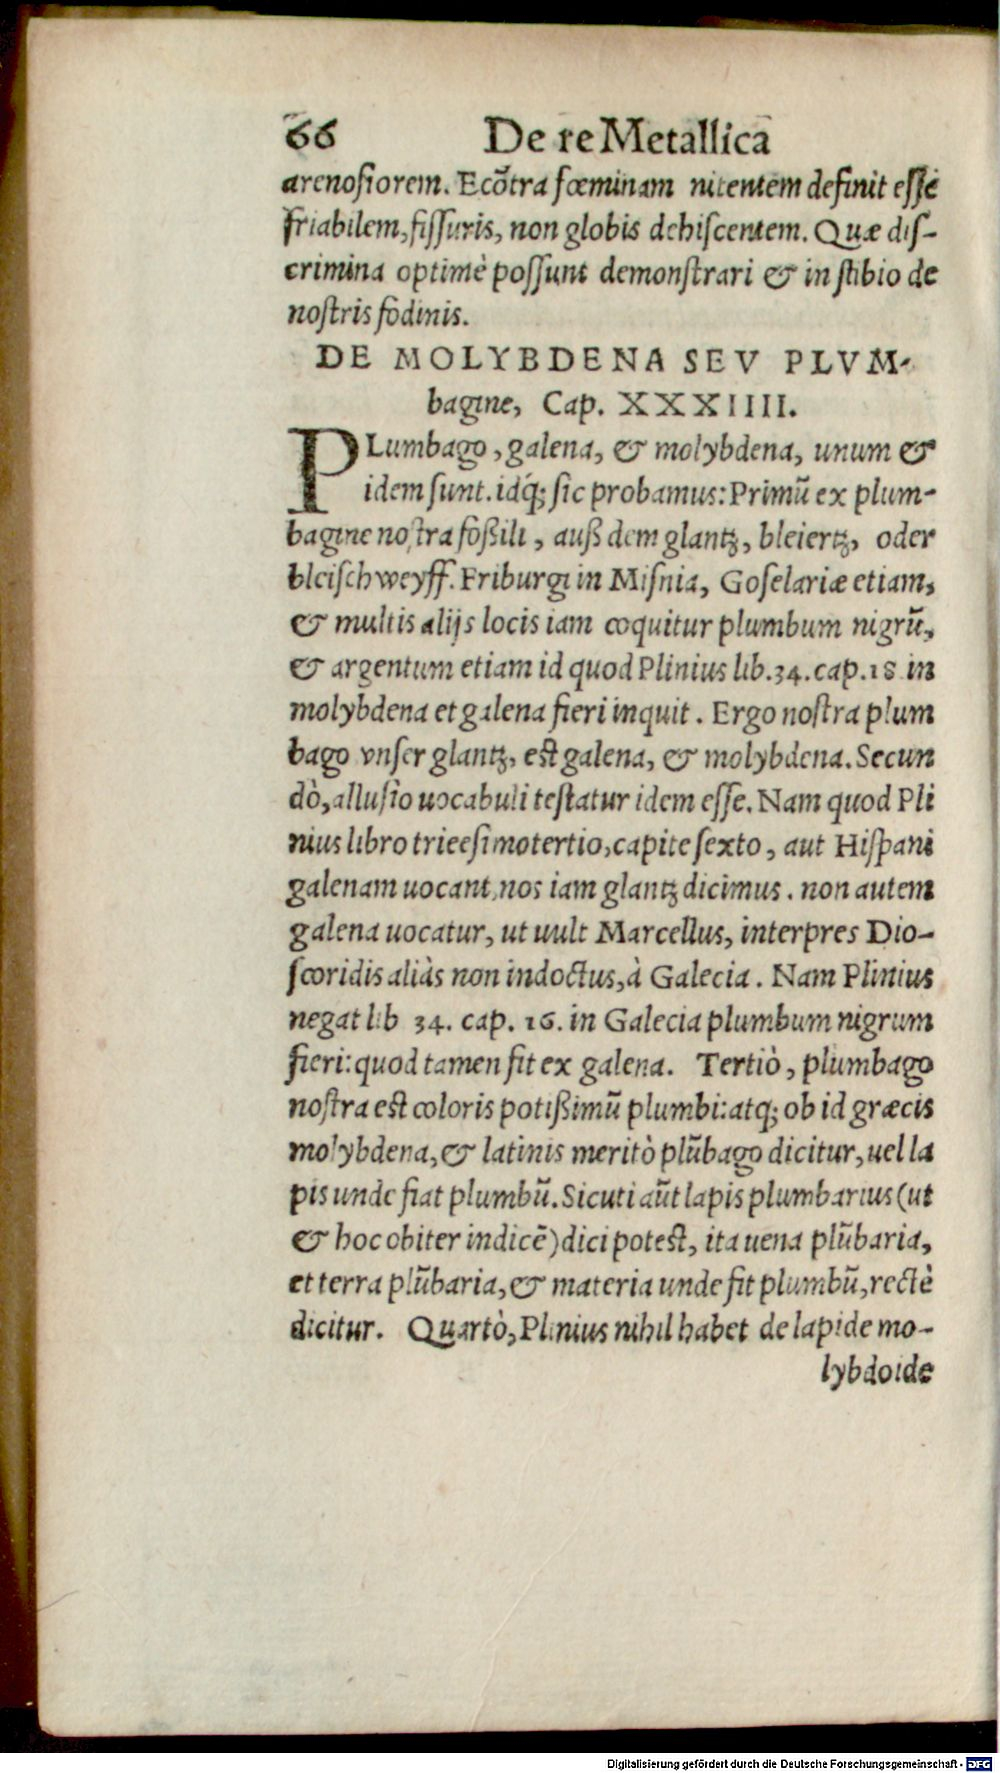 66 De re Metallica
arenosiorem. Ecõtra fœminam nitentem definit esse
friabilem, fissuris, non globis dehiscentem. Quæ dis-
crimina optimè possunt demonstrari & in stibio de
nostris fodinis.
DE MOLYBDENA SEV PLVM-
bagine, Cap. XXXIIII.
PLumbago, galena, & molybdena, unum &
idem sunt. idq́; sic probamus: Primũ ex plum-
bagine nostra foßili, auß dem glantz, bleiertz, oder
bleischweyff. Friburgi in Misnia, Goselariæ etiam,
& multis alijs locis iam coquitur plumbum nigrũ,
& argentum etiam id quod Plinius lib. 34. cap. 18 in
molybdena et galena fieri inquit. Ergo nostra plum
bago vnser glantz, est galena, & molybdena. Secun
dò, allusio uocabuli testatur idem esse. Nam quod Pli
nius libro trieesimotertio, capite sexto, aut Hispani
galenam uocant, nos iam glantz dicimus. non autem
galena uocatur, ut uult Marcellus, interpres Dio-
scoridis aliàs non indoctus, à Galecia. Nam Plinius
negat lib 34. cap. 16. in Galecia plumbum nigrum
fieri: quod tamen fit ex galena. Tertiò, plumbago
nostra est coloris potißimũ plumbi: atq; ob id græcis
molybdena, & latinis meritò plũbago dicitur, uel la
pis unde fiat plumbũ. Sicuti aũt lapis plumbarius (ut
& hoc obiter indicẽ) dici potest, ita uena plũbaria,
et terra plũbaria, & materia unde fit plumbũ, rectè
dicitur. Quartò, Plinius nihil habet de lapide mo-
lybdoide
Digitalisierung gefördert durch die Deutsche Forschungsgemeinschaft - DFG